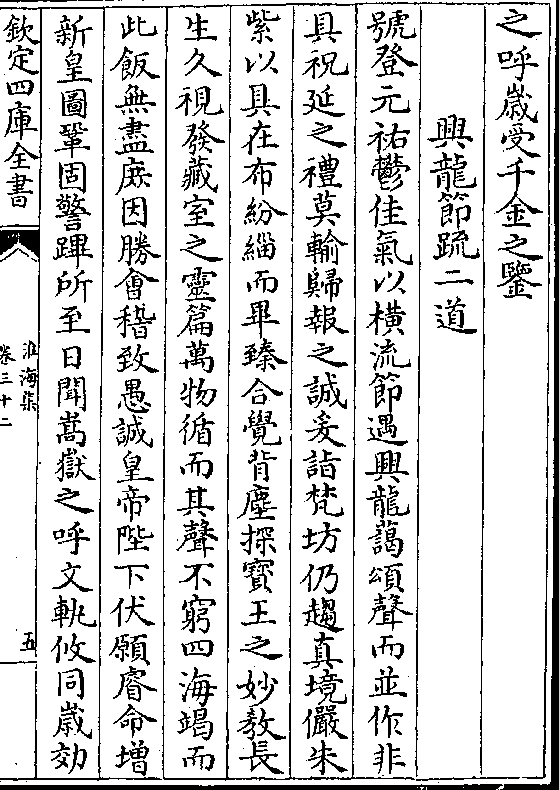 之呼歲受千金之鑒
興龍節疏二道
號登元祐鬱佳氣以橫流節遇興龍藹頌聲而並作非
具祝延之禮莫輸歸報之誠爰詣梵坊仍趨真境儼朱
紫以具在布紛緇而畢臻合覺背塵探寳王之妙教長
生久視發藏室之靈篇萬物循而其聲不窮四海竭而
此飯無盡庶因勝會稽致愚誠皇帝陛下伏願睿命増
新皇圖鞏固警蹕所至日聞嵩嶽之呼文軌攸同歲効
欽定四庫全書
淮海集
卷三十二
五